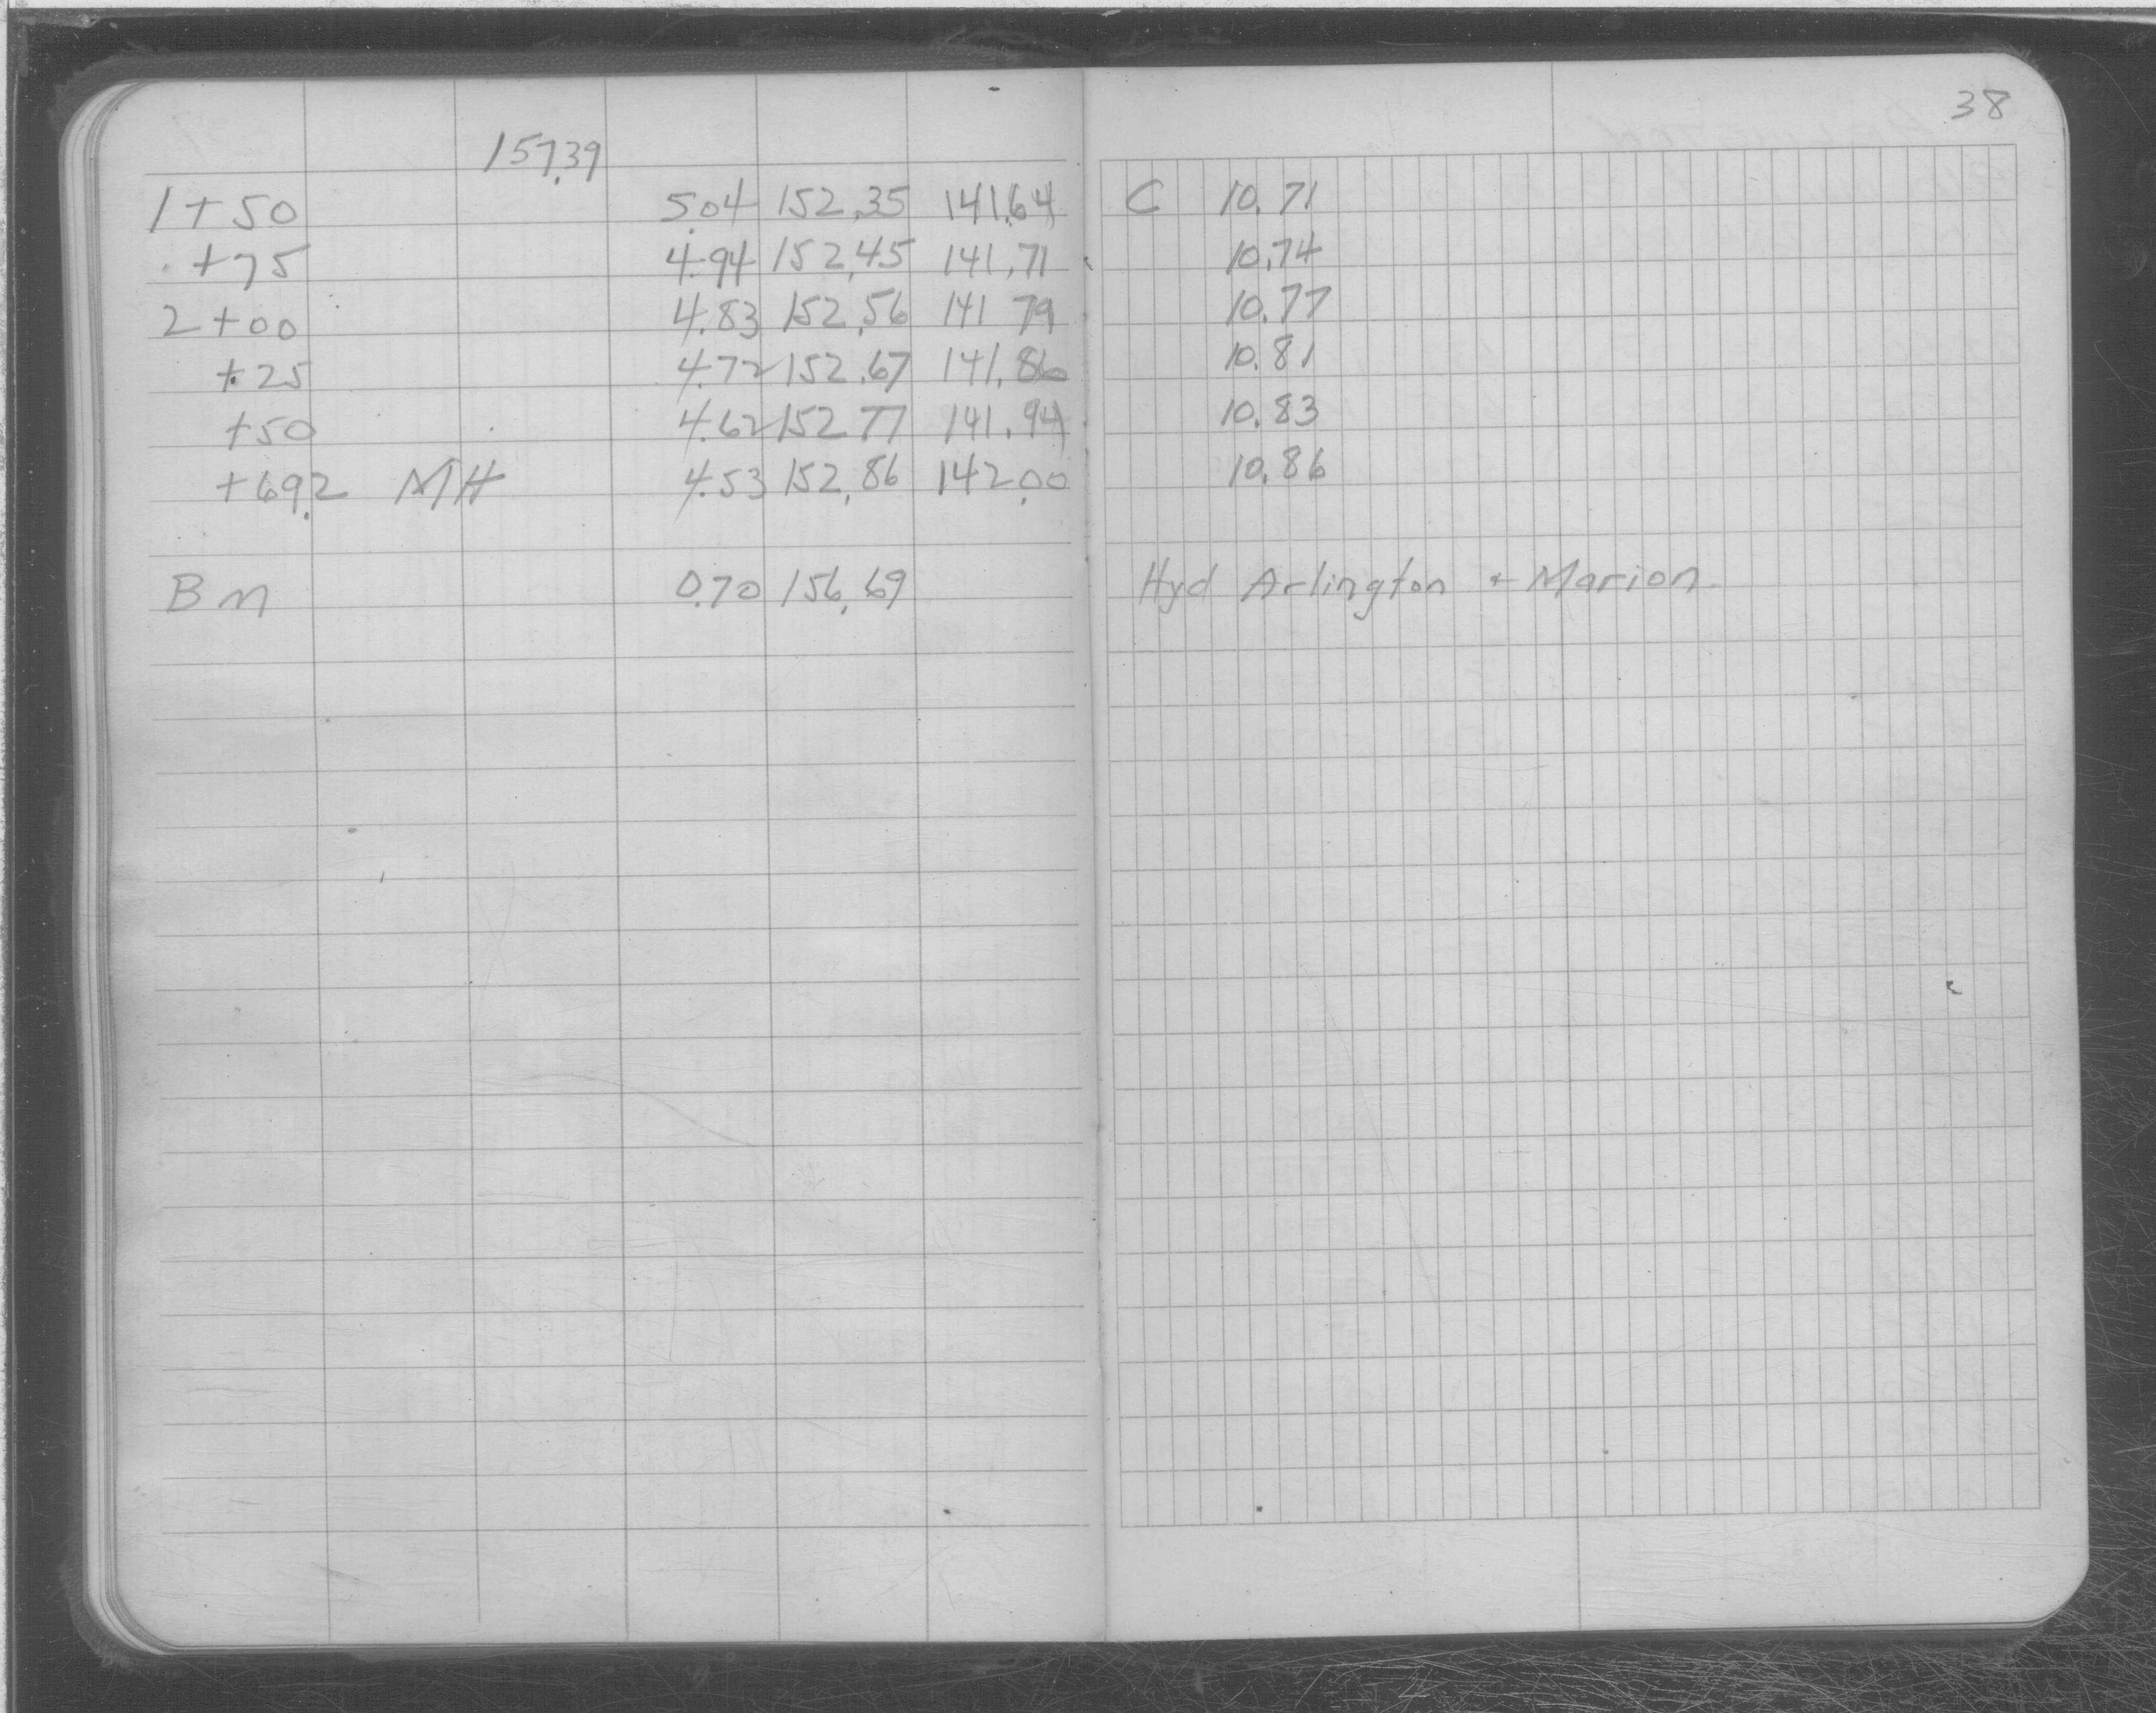 38
157.39
1+50 5.04 152.35 141.64 C 10.71
+75 4.94 152.45 141.71 10.74
2+00 4.83 152.56 141 79 10.77
+25 4.72 152.67 141.86 10.81
+50 4.62 152 77 141.94 10.83
+69.2 MH 4.53 152.86 142.00 10.86
BM 0.70 156.69 Hyd Arlington + Marion